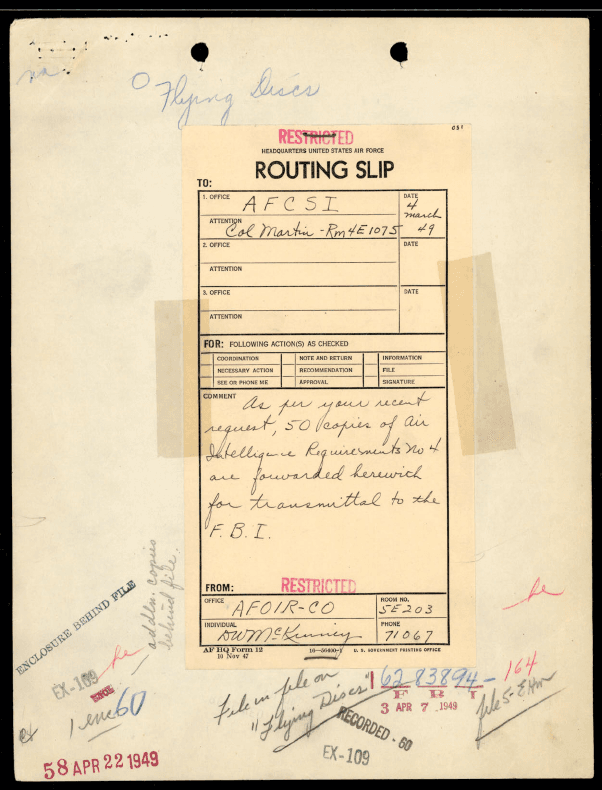 Flying Discs
RESTRICTED
HEADQUARTERS UNITED STATES AIR FORCE
ROUTING SLIP
TO:
1. OFFICE
AFCSI
DATE
4
march
49
ATTENTION
Col Martin - Rm 4E1075
2. OFFICE
DATE
ATTENTION
3. OFFICE
DATE
ATTENTION
FOR: FOLLOWING ACTION(S) AS CHECKED
COORDINATION
NOTE AND RETURN
INFORMATION
NECESSARY ACTION
RECOMMENDATION
FILE
SEE OR PHONE ME
APPROVAL
SIGNATURE
COMMENT
As per your recent
request, 50 copies of Air
Intelligence Requirements No 4
are forwarded herewith
for transmittal to the
F.B.I.
addln. copies
behind file.
ENCLOSURE BEHIND FILE
FROM:
RESTRICTED
OFFICE
AFOIR-CO
ROOM NO.
5E203
INDIVIDUAL
DW McKinney
PHONE
71067
AF HQ Form 12
10 Nov 47
16—56400-1 U. S. GOVERNMENT PRINTING OFFICE
EX-109
1 enc 60
File in file on
"Flying Discs"
162-83894-164
F B I
3 APR 7 1949
RECORDED - 60
EX-109
58 APR 22 1949